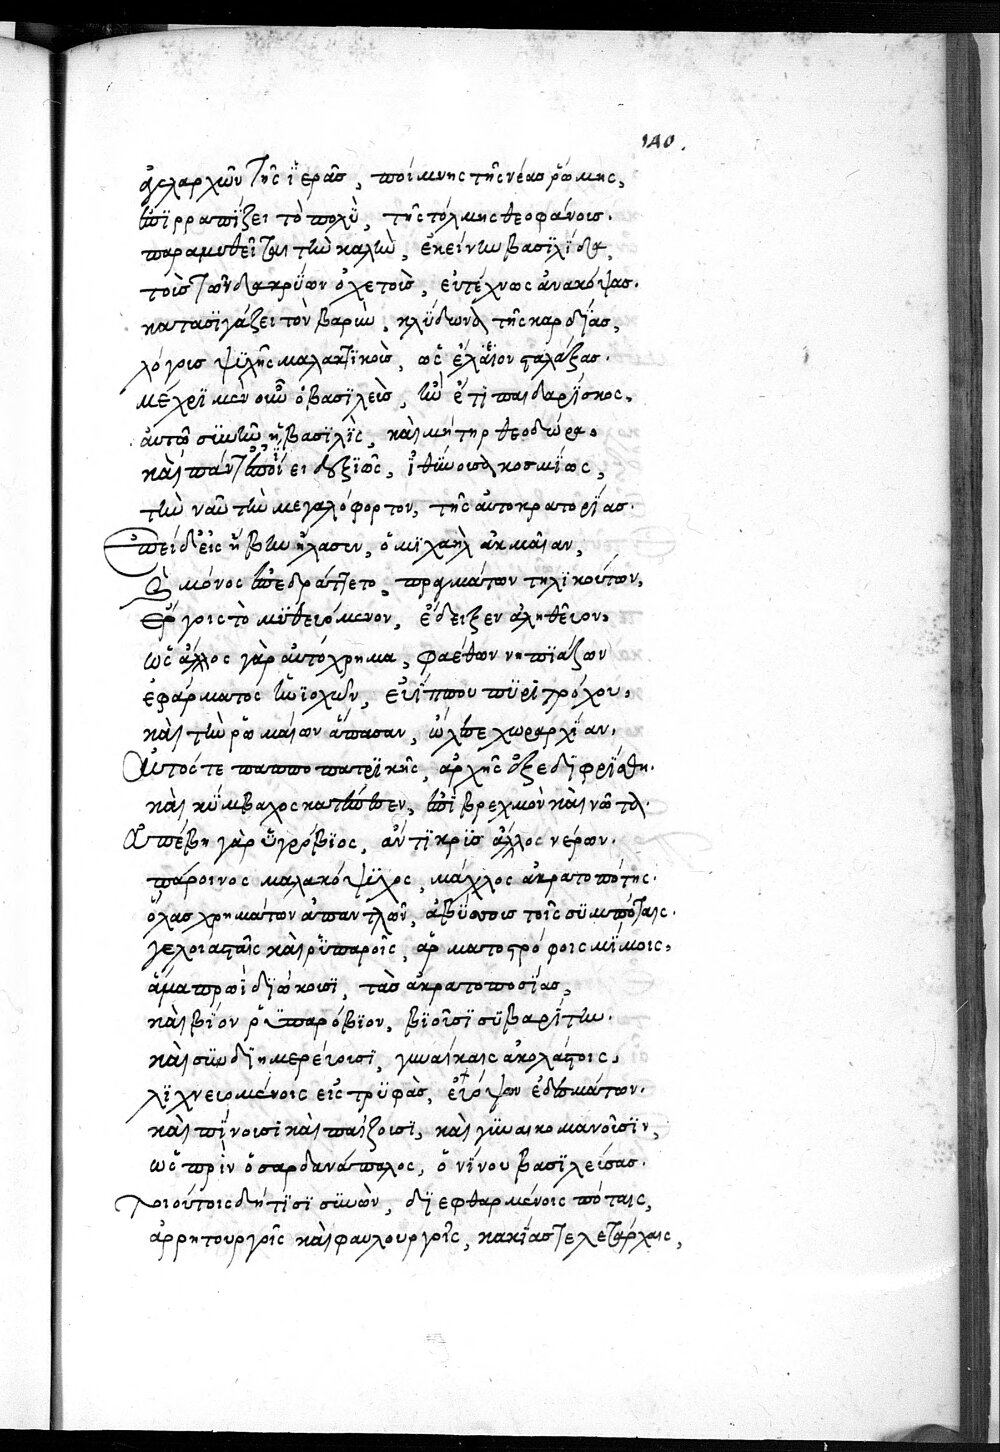 140.
ἀγελαρχῶν τῆς ἱερᾶς, ποίμνης τῆς νέας ῥώμης,
ἐπιρραπίζει τὸ πολὺ, τῆς τόλμης θεοφάνους.
παραμυθεῖται τὴν καλὴν, ἐκείνην βασιλίδα,
τοὺς τῶν δακρύων ὀχετοὺς, εὐτέχνως ἀνακόψας.
κατασιγάζει τὸν βαρὺν, κλύδωνα τῆς καρδίας,
λόγοις ψυχῆς μαλακτικοῖς, ὡς ἔλαιον σταλάξας.
μέχρι μὲν οὖν ὁ βασιλεὺς, ἦν ἔτι παιδαρίσκος,
αὐτῷ συνῆν ἡ βασιλὶς, καὶ μήτηρ θεοδώρα,
καὶ πάντ' ἐποίει δεξιῶς, ἰθύνουσα κοσμίως,
τὴν ναῦν τὴν μεγαλόφορτον, τῆς αὐτοκρατορίας.
Ἐπεὶ δ' εἰς ἥβην ἤλασεν, ὁ μιχαὴλ ἀκμαίαν,
καὶ μόνος ἐπεδράττετο, πραγμάτων τηλικούτων,
ἔργοις τὸ μυθευόμενον, ἔδειξεν ἀληθεῦον,
ὡς ἄλλος γὰρ αὐτόχρημα, φαέθων νηπιάζων
ἐφ' ἅρματος ἡνιοχῶν, εὐίππου πυριτρόχου,
καὶ τὴν ῥωμαίων ἅπασαν, ὤλεσε χωραρχίαν.
Αὐτός τε παπποπατρικῆς, ἀρχῆς ἐξεδιφρίσθη.
καὶ κύμβαχος κατέπεσεν, ἐπὶ βρεχμὸν καὶ νῶτα.
Ἀπέβη γὰρ ὑγρόβιος, ἀντικρὺς ἄλλος νέρων.
πάροινος μαλακόψυχος, μάχλος ἀκρατοπότης.
ὅλας χρημάτων ἀπαντλῶν, ἀβύσσους τοῖς συμπόταις.
γελοιασταῖς καὶ ῥυπαροῖς, ἁρματοτρόφοις μίμοις,
ἅμα πρωῒ διώκουσι, τὰς ἀκρατοποσίας,
καὶ βίον ῥυπαρόβιον, βιοῦσι συβαρίτην.
καὶ συνδιημερεύουσι, γυναίκαις ἀκολάστοις,
λιχνευομένοις εἰς τρυφὰς, εὐόψων ἐδεσμάτων.
καὶ πίνουσι καὶ παίζουσι, καὶ γυναικομανοῦσιν,
ὡς πρὶν ὁ σαρδανάπαλος, ὁ νίνου βασιλεύσας.
Τοιούτοις δή τισι συνὼν, διεφθαρμένοις πόταις,
ἀρρητουργοῖς καὶ φαυλουργοῖς, κακίας τελετάρχαις,